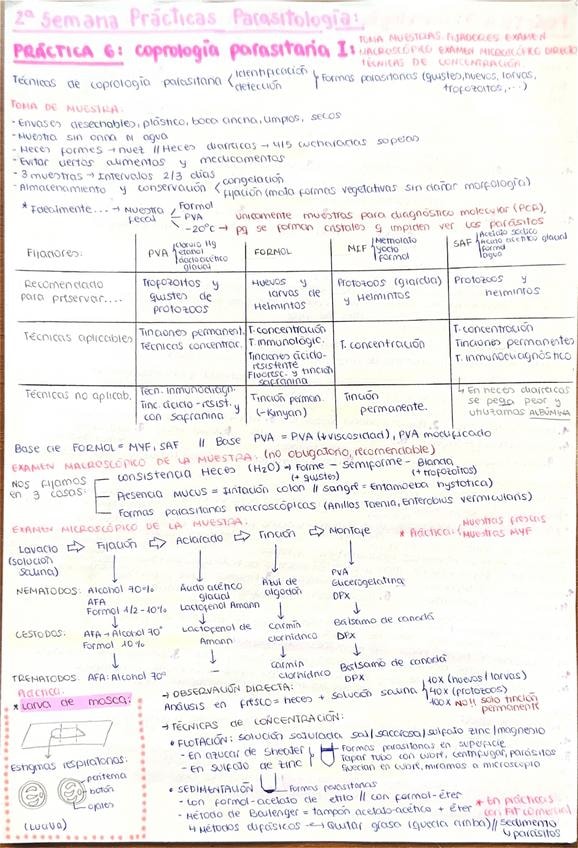 2ª Semana Prácticas Parasitología:
PRÁCTICA 6: coprología parasitaria I:
TOMA MUESTRAS. FIJADORES EXAMEN
MACROSCÓPICO EXAMEN MICROSCÓPICO DIRECTO
TÉCNICAS DE CONCENTRACIÓN.
Técnicas de coprología parasitaria
identificación
detección
Formas parasitarias (quistes, huevos, larvas,
trofozoitos, ...)
TOMA DE MUESTRA:
- Envases desechables, plástico, boca ancha, limpios, secos
- Muestra sin orina ni agua
- Heces formes → nuez // Heces diarreicas → 4/5 cucharadas soperas
- Evitar ciertos alimentos y medicamentos
- 3 muestras → Intervalos 2/3 días
- Almacenamiento y conservación
congelación
fijación (mata formas vegetativas sin dañar morfología)
* Idealmente... → Muestra fecal
Formol
PVA
-20°C →
únicamente muestras para diagnóstico molecular (PCR),
pq se forman cristales q impiden ver los parásitos
Fijadores:
PVA
cloruro Hg
etanol
ácido acético
glacial
FORMOL
MIF
Mertiolato
yodo
formol
SAF
Acetato sódico
Ácido acético glacial
formol
agua
Recomendado
para preservar....
Trofozoitos y
quistes de
protozoos
Huevos y
larvas de
Helmintos
Protozoos (giardia)
y Helmintos
Protozoos y
helmintos
Técnicas aplicables
Tinciones permanent.
Técnicas concentrac.
T. concentración
T. inmunológic.
Tinciones ácido-
resistente
Fluoresc. y tinción
safranina
T. concentración
T. concentración
Tinciones permanentes
T. inmunodiagnóstico
Técnicas no aplicab.
Tecn. inmunodiagn.
Tinc. ácido-resist. y
con safranina
Tinción perman.
(-Kinyan)
Tinción
permanente.
↳ En heces diarreicas
se pega peor y
utilizamos ALBÚMINA
Base de FORMOL = MYF, SAF // Base PVA = PVA (+viscosidad), PVA modificado
EXAMEN MACROSCÓPICO DE LA MUESTRA: (no obligatorio, recomendable)
NOS fijamos
en 3 cosas:
consistencia Heces (H2O) → Forme - semiforme - Blanda
(+ quistes)
(+trofozoitos)
Presencia mucus = irritación colon // sangre = Entamoeba hystolítica)
Formas parasitarias macroscópicas (Anillos Taenia, Enterobius vermicularis)
EXAMEN MICROSCÓPICO DE LA MUESTRA:
* Práctica:
Muestras frescas
Muestras MYF
Lavado ⇨ Fijación ⇨ Aclarado ⇨ Tinción ⇨ Montaje
(solución
salina)
NEMATODOS:
Alcohol 70%
AFA
Formol 1/2-10%
Ácido acético
glacial
Lactofenol Amann
Azul de
algodón
PVA
Glicerogelatina
DPX
CESTODOS:
AFA → Alcohol 70°
Formol 10%
Lactofenol de
Amann
Carmín
clorhídrico
Bálsamo de canadá
DPX
TREMATODOS:
AFA: Alcohol 70°
carmín
clorhídrico
Bálsamo de canadá
DPX
Práctica:
* Larva de mosca:
Estigmas respiratorios:
peritrema
botón
ojales
→ OBSERVACIÓN DIRECTA:
Análisis en fresco = heces + solución salina
10X (huevos/larvas)
40X (protozoos)
100X NO!! solo tinción
permanente
→ TÉCNICAS DE CONCENTRACIÓN:
• FLOTACIÓN: solución saturada sal/sacarosa/sulfato zinc/magnesio
- En azúcar de Sheater
- En sulfato de zinc
Formas parasitarias en superficie
Tapar tubo con cubre, centrifugar, parásitos
quedan en cubre, miramos a microscopio
• SEDIMENTACIÓN
Formas parasitarias
- con formol-acetato de etilo // con formol-éter
- Método de Bailenger = tampón acetato-acético + éter
* En prácticas
con kit comercial
↳ Métodos difásicos → Quitar grasa (queda arriba) // sedimento
y parásitos